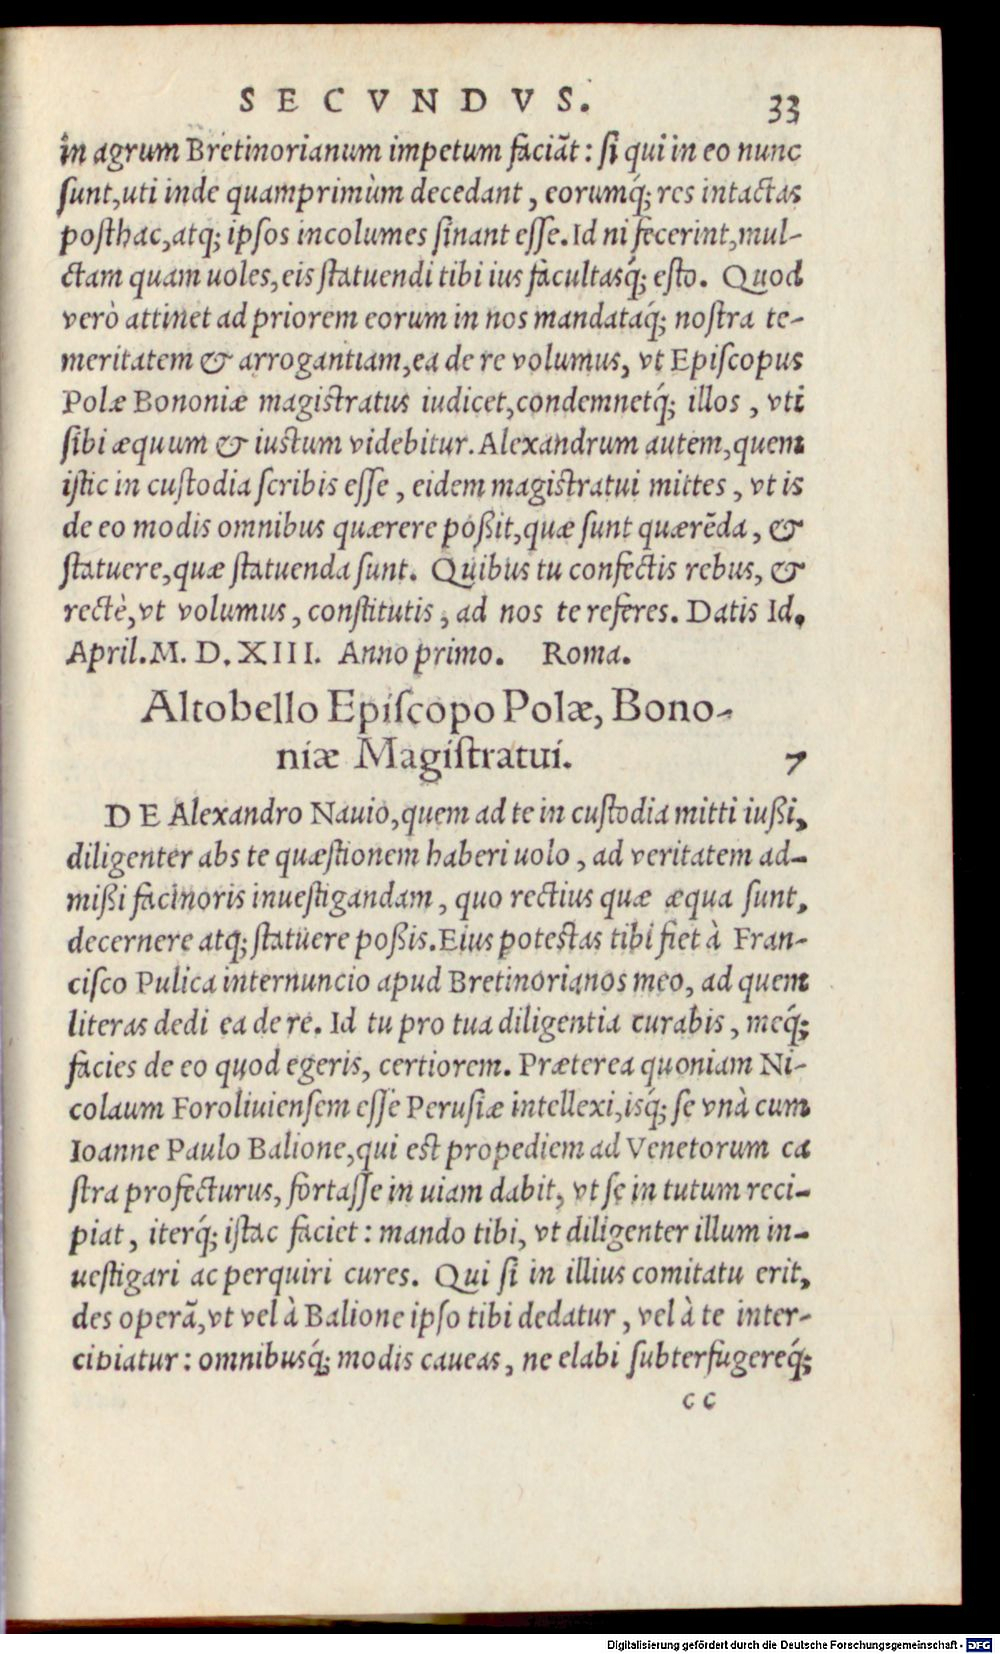 SECVNDVS. 33
in agrum Bretinorianum impetum faciāt: si qui in eo nunc
sunt, uti inde quamprimùm decedant, eorumq́; res intactas
posthac, atq; ipsos incolumes sinant esse. Id ni fecerint, mul-
ctam quam uoles, eis statuendi tibi ius facultasq́; esto. Quod
verò attinet ad priorem eorum in nos mandataq́; nostra te-
meritatem & arrogantiam, ea de re volumus, vt Episcopus
Polæ Bononiæ magistratus iudicet, condemnetq́; illos, vti
sibi æquum & iustum videbitur. Alexandrum autem, quem
istic in custodia scribis esse, eidem magistratui mittes, vt is
de eo modis omnibus quærere poßit, quæ sunt quærēda, &
statuere, quæ statuenda sunt. Quibus tu confectis rebus, &
rectè, vt volumus, constitutis, ad nos te referes. Datis Id.
April. M. D. XIII. Anno primo. Roma.
Altobello Episcopo Polæ, Bono-
niæ Magistratui. 7
DE Alexandro Nauio, quem ad te in custodia mitti iußi,
diligenter abs te quæstionem haberi uolo, ad veritatem ad-
mißi facinoris inuestigandam, quo rectius quæ æqua sunt,
decernere atq; statuere poßis. Eius potestas tibi fiet à Fran-
cisco Pulica internuncio apud Bretinorianos meo, ad quem
literas dedi ea de re. Id tu pro tua diligentia curabis, meq́;
facies de eo quod egeris, certiorem. Præterea quoniam Ni-
colaum Foroliuiensem esse Perusiæ intellexi, isq́; se vnà cum
Ioanne Paulo Balione, qui est propediem ad Venetorum ca
stra profecturus, fortasse in uiam dabit, vt se in tutum reci-
piat, iterq́; istac faciet: mando tibi, vt diligenter illum in-
uestigari ac perquiri cures. Qui si in illius comitatu erit,
des operā, vt vel à Balione ipso tibi dedatur, vel à te inter-
cipiatur: omnibusq́; modis caueas, ne elabi subterfugereq́;
cc
Digitalisierung gefördert durch die Deutsche Forschungsgemeinschaft - DFG